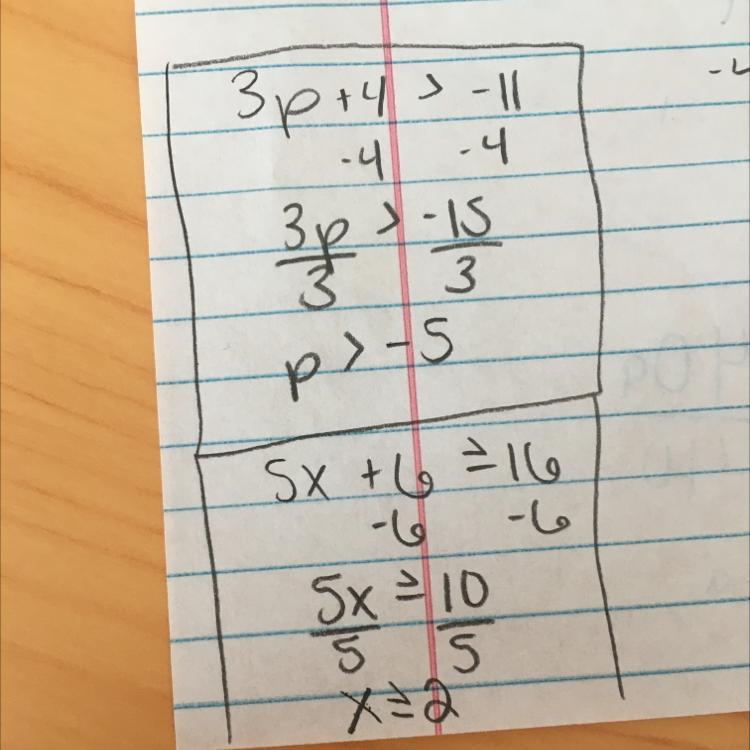 3p+4 > -11
-4 -4
3p > -15
3 3
p > -5
5x +6 ≥ 16
-6 -6
5x ≥ 10
5 5
x ≥ 2